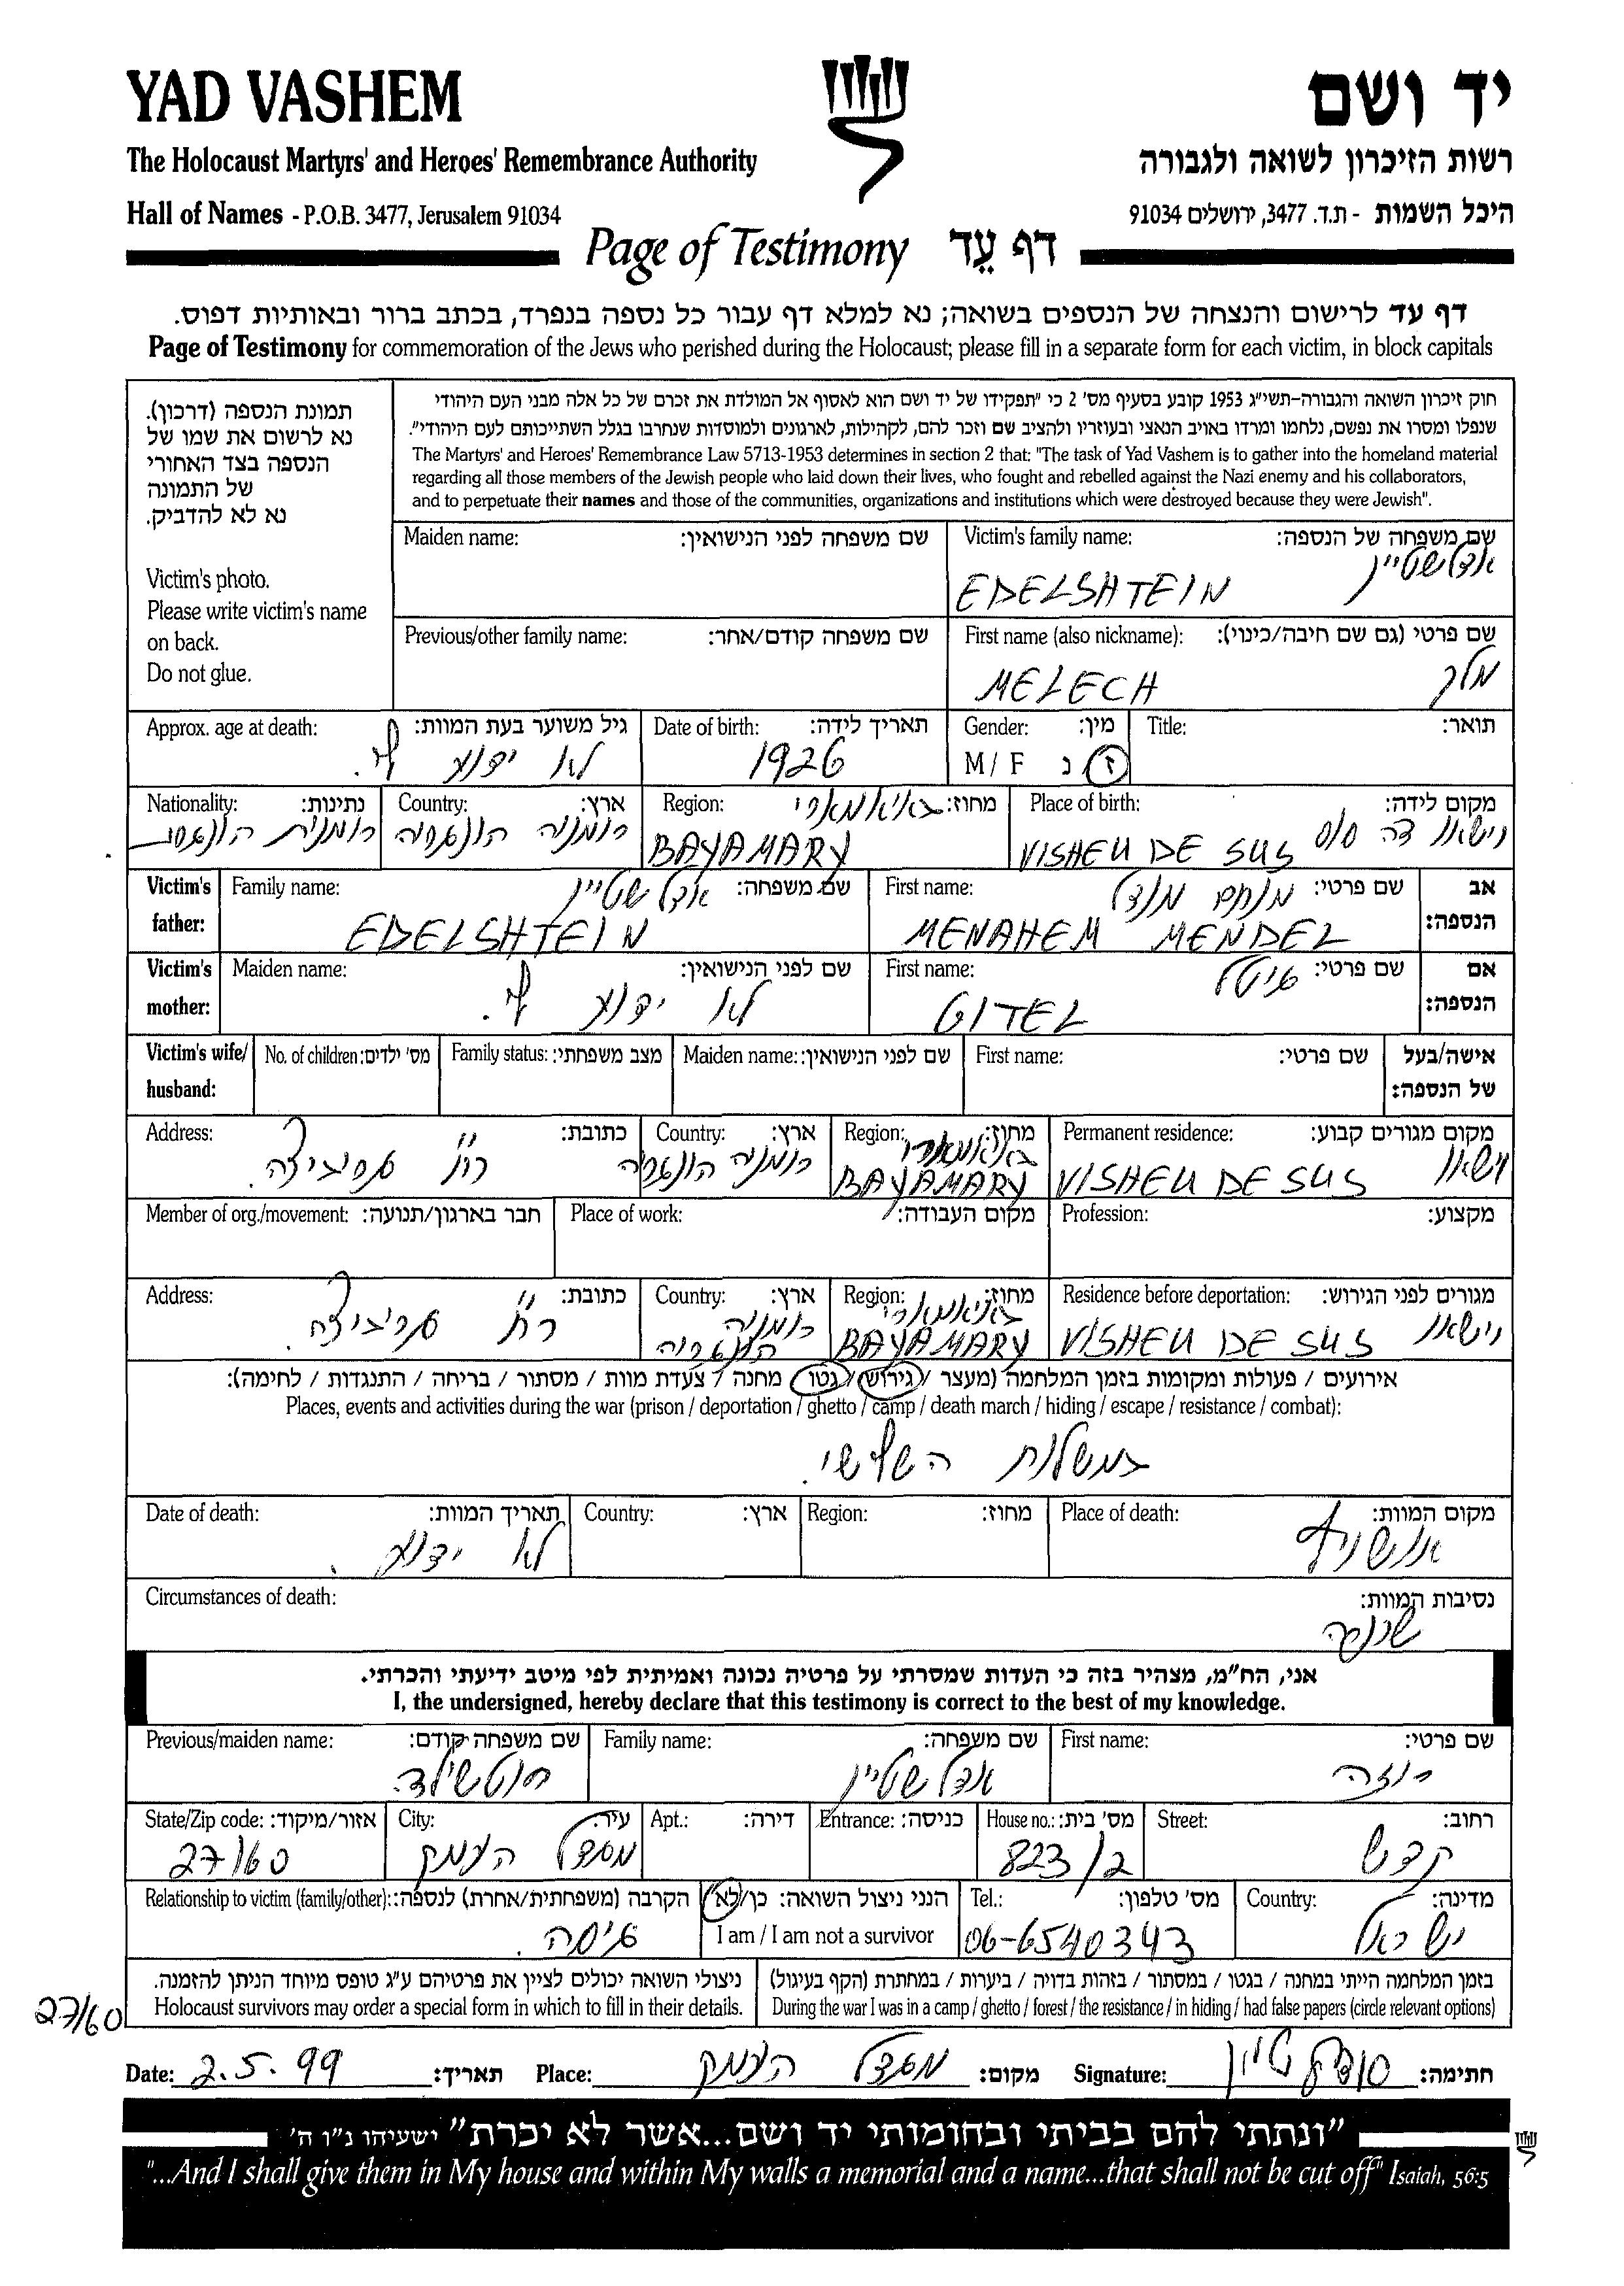 YAD VASHEM
יד ושם
The Holocaust Martyrs' and Heroes' Remembrance Authority
רשות הזיכרון לשואה ולגבורה
Hall of Names - P.O.B. 3477, Jerusalem 91034
היכל השמות - ת.ד. 3477, ירושלים 91034
Page of Testimony דף עֵד
דף עד לרישום והנצחה של הנספים בשואה; נא למלא דף עבור כל נספה בנפרד, בכתב ברור ובאותיות דפוס.
Page of Testimony for commemoration of the Jews who perished during the Holocaust; please fill in a separate form for each victim, in block capitals
תמונת הנספה (דרכון).
נא לרשום את שמו של
הנספה בצד האחורי
של התמונה
נא לא להדביק.
Victim's photo.
Please write victim's name
on back.
Do not glue.
חוק זיכרון השואה והגבורה-תשי"ג 1953 קובע בסעיף מס' 2 כי "תפקידו של יד ושם הוא לאסוף אל המולדת את זכרם של כל אלה מבני העם היהודי
שנפלו ומסרו את נפשם, נלחמו ומרדו באויב הנאצי ובעוזריו ולהציב שם וזכר להם, לקהילות, לארגונים ולמוסדות שנחרבו בגלל השתייכותם לעם היהודי".
The Martyrs' and Heroes' Remembrance Law 5713-1953 determines in section 2 that: "The task of Yad Vashem is to gather into the homeland material
regarding all those members of the Jewish people who laid down their lives, who fought and rebelled against the Nazi enemy and his collaborators,
and to perpetuate their names and those of the communities, organizations and institutions which were destroyed because they were Jewish".
Victim's family name: שם משפחה של הנספה:
אדלשטיין
EDELSHTEIN
Maiden name: שם משפחה לפני הנישואין:
First name (also nickname): שם פרטי (גם שם חיבה/כינוי):
MELECH מלך
Previous/other family name: שם משפחה קודם/אחר:
Title: תואר:
Gender: מין:
M / F ז נ
Date of birth: תאריך לידה:
1926
Approx. age at death: גיל משוער בעת המוות:
לא ידוע לי.
Place of birth: מקום לידה:
וישאו דה סוס
VISHEU DE SUS
Region: מחוז: באיאמארי
BAYAMARY
Country: ארץ:
רומניה הונגריה
Nationality: נתינות:
רומנית
Victim's father: אב הנספה:
First name: שם פרטי: מנחם מנדל
MENAHEM MENDEL
Family name: שם משפחה: אדלשטיין
EDELSHTEIN
Victim's mother: אם הנספה:
First name: שם פרטי: גיטל
GITEL
Maiden name: שם לפני הנישואין:
לא ידוע לי.
Victim's wife/ husband: אישה/בעל של הנספה:
First name: שם פרטי:
Maiden name: שם לפני הנישואין:
Family status: מצב משפחתי:
No. of children: מס' ילדים:
Permanent residence: מקום מגורים קבוע:
VISHEU DE SUS וישאו
Region: מחוז: באיאמארי
BAYAMARY
Country: ארץ:
רומניה הונגריה
Address: כתובת:
רח'
Profession: מקצוע:
Place of work: מקום העבודה:
Member of org./movement: חבר בארגון/תנועה:
Residence before deportation: מגורים לפני הגירוש:
VISHEU DE SUS וישאו
Region: מחוז: באיאמארי
BAYAMARY
Country: ארץ:
רומניה
הונגריה
Address: כתובת:
רח'
אירועים / פעולות ומקומות בזמן המלחמה (מעצר / גירוש / גטו / מחנה / צעדת מוות / מסתור / בריחה / התנגדות / לחימה):
Places, events and activities during the war (prison / deportation / ghetto / camp / death march / hiding / escape / resistance / combat):
במשלוח השלישי.
Place of death: מקום המוות:
אושויץ
Region: מחוז:
Country: ארץ:
Date of death: תאריך המוות:
לא ידוע.
Circumstances of death: נסיבות המוות:
שרופה
אני, הח"מ, מצהיר בזה כי העדות שמסרתי על פרטיה נכונה ואמיתית לפי מיטב ידיעתי והכרתי.
I, the undersigned, hereby declare that this testimony is correct to the best of my knowledge.
First name: שם פרטי:
רוזה
Family name: שם משפחה:
אדלשטיין
Previous/maiden name: שם משפחה קודם:
רוטשילד
Street: רחוב:
קדש
House no.: מס' בית:
823/2
Entrance: כניסה:
Apt.: דירה:
City: עיר:
מגדל העמק
State/Zip code: אזור/מיקוד:
27/60
Country: מדינה:
ישראל
Tel.: מס' טלפון:
06-6540343
הנני ניצול השואה: כן/לא
I am / I am not a survivor
Relationship to victim (family/other): הקרבה (משפחתית/אחרת) לנספה:
גיסה.
בזמן המלחמה הייתי במחנה / בגטו / במסתור / בזהות בדויה / ביערות / במחתרת (הקף בעיגול)
During the war I was in a camp / ghetto / forest / the resistance / in hiding / had false papers (circle relevant options)
ניצולי השואה יכולים לציין את פרטיהם ע"ג טופס מיוחד הניתן להזמנה.
Holocaust survivors may order a special form in which to fill in their details.
27/60
Date: 2.5.99 תאריך: Place: מגדל העמק מקום: Signature: חתימה:
"ונתתי להם בביתי ובחומותי יד ושם...אשר לא יכרת" ישעיהו נ"ו ה'
"...And I shall give them in My house and within My walls a memorial and a name...that shall not be cut off" Isaiah, 56:5